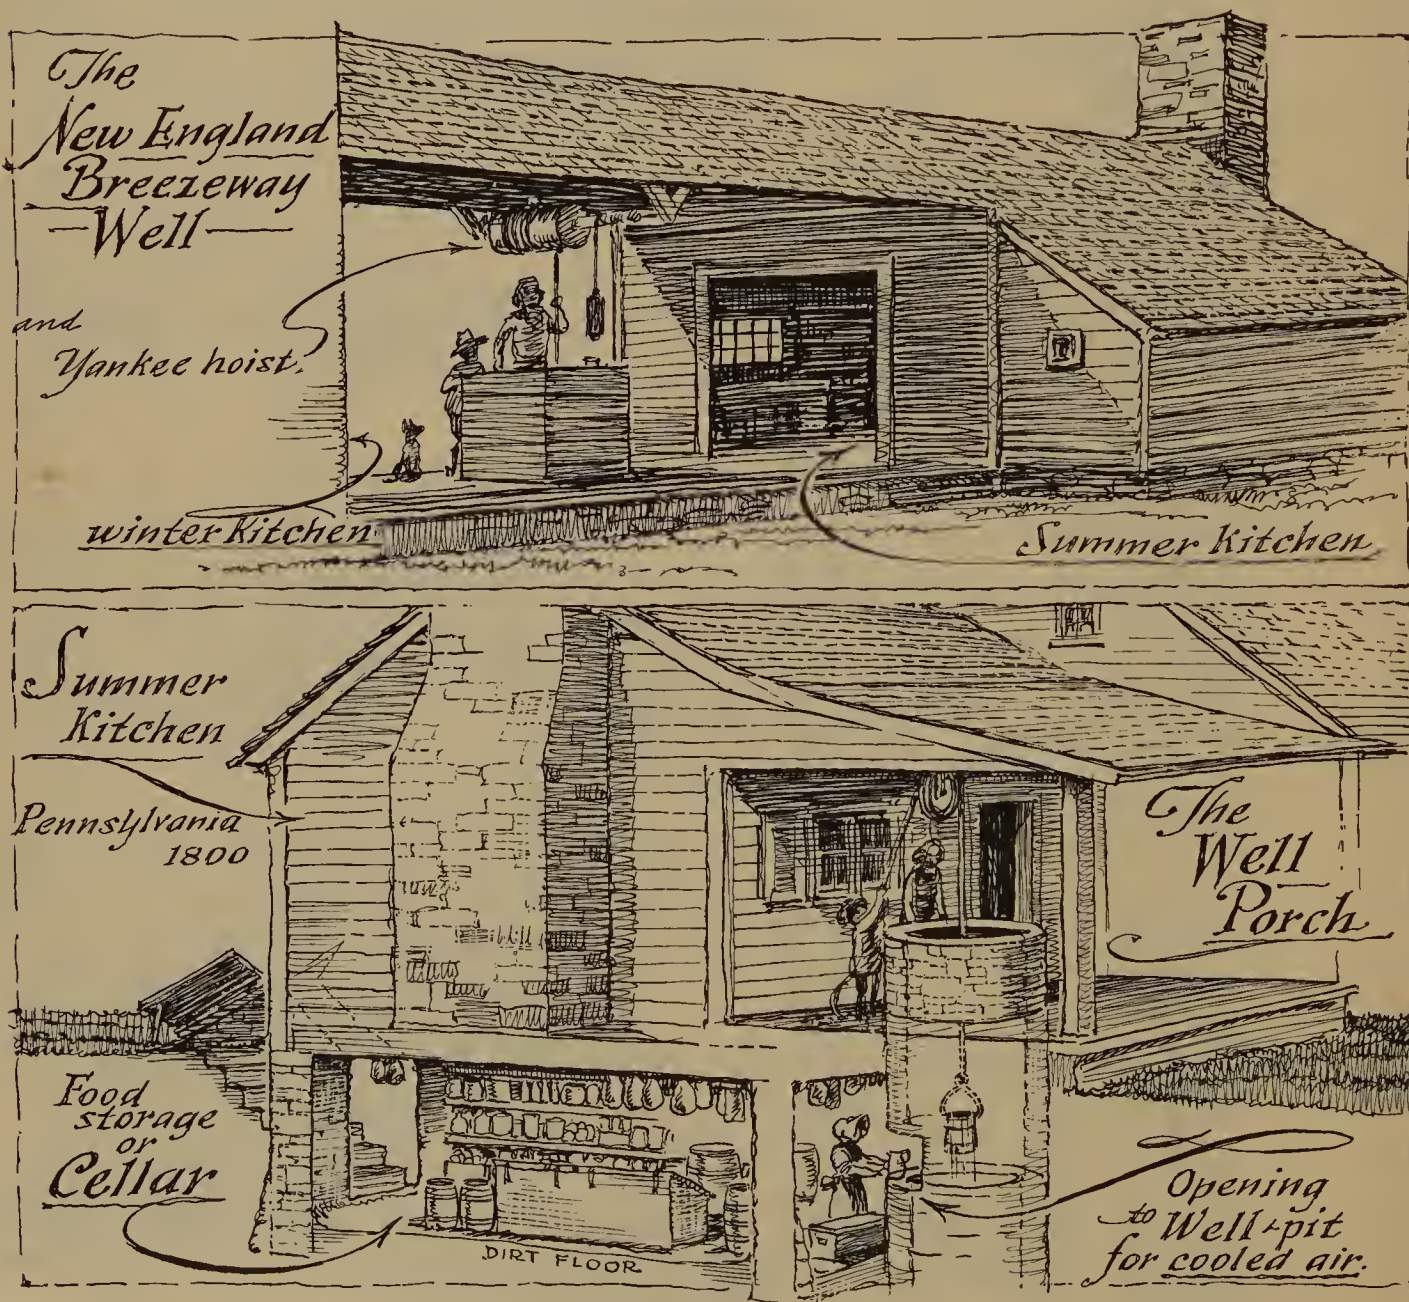 The
New England
Breezeway
Well
and
Yankee hoist.
winter Kitchen
Summer Kitchen
Summer
Kitchen
Pennsylvania
1800
The
Well
Porch
Food
storage
or
Cellar
DIRT FLOOR
Opening
to Well-pit
for cooled air.